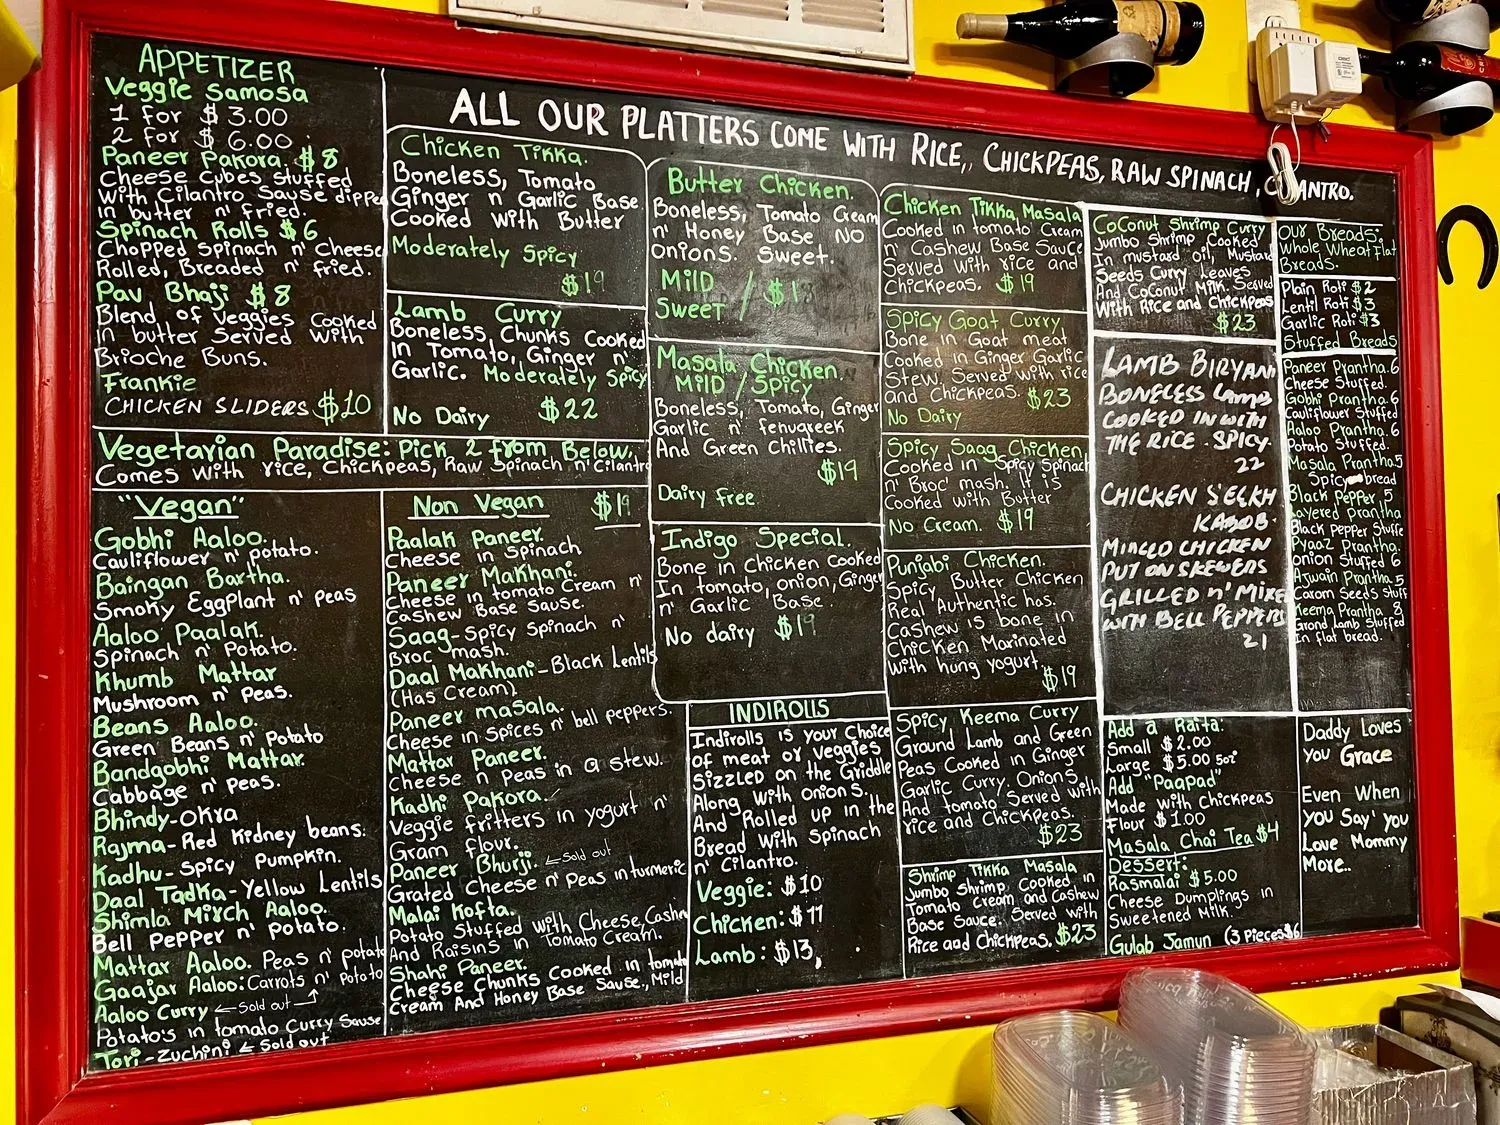 APPETIZER
Veggie Samosa
1 for $3.00
2 for $6.00
Paneer Pakora. $8
Cheese Cubes stuffed
with Cilantro Sause dipped
In butter n' fried.
Spinach Rolls $6
Chopped Spinach n' Cheese
Rolled, Breaded n' fried.
Pav Bhaji $8
Blend of veggies Cooked
In butter Served With
Brioche Buns.
Frankie
CHICKEN SLIDERS $10
ALL OUR PLATTERS COME WITH RICE,, CHICKPEAS, RAW SPINACH,
Chicken Tikka.
Boneless, Tomato
Ginger n Garlic Base
Cooked With Butter
Moderately Spicy
$19
Lamb Curry
Boneless Chunks Cooked
In Tomato, Ginger n'
Garlic. Moderately Spicy
No Dairy $22
Butter Chicken.
Boneless, Tomato Cream
n' Honey Base NO
Onions. Sweet.
Mild
Sweet /
Masala Chicken.
Mild / Spicy
Boneless, Tomato, Ginger
Garlic n' fenugreek
And Green Chillies.
$19
Dairy free
Indigo Special.
Bone in Chicken Cooked
In tomato, onion, Ginger
n' Garlic Base.
No dairy $19
Chicken Tikka Masala
Cooked in tomato Cream
n' Cashew Base Sauce
Served With rice and
Chickpeas. $19
Spicy Goat Curry
Bone in Goat meat
Cooked in Ginger Garlic
Stew. Served with rice
and Chickpeas. $23
No Dairy
Spicy Saag Chicken
Cooked in Spicy Spinach
n' Broc' mash. It is
Cooked with Butter
No Cream. $19
Punjabi Chicken.
Spicy Butter Chicken
Real Authentic has.
Cashew is bone in
Chicken Marinated
with hung yogurt.
$19
Spicy Keema Curry
Ground Lamb and Green
Peas Cooked in Ginger
Garlic Curry. Onions
And tomato. Served with
rice and Chickpeas.
$23
Shrimp Tikka Masala
Jumbo Shrimp Cooked in
Tomato Cream and Cashew
Base Sauce. Served with
Rice and Chickpeas. $23
Coconut Shrimp Curry
Jumbo Shrimp Cooked
In mustard oil, Mustard
Seeds Curry Leaves
And Coconut Milk. Served
With Rice and Chickpeas
$23
LAMB BIRYANI
BONELESS LAMB
COOKED IN WITH
THE RICE. SPICY.
22
CHICKEN SEEKH
KABOB.
MINCED CHICKEN
PUT ON SKEWERS
GRILLED n' MIXED
WITH BELL PEPPERS
21
Our Breads:
Whole Wheat flat
Breads.
Plain Roti $2
Lentil Roti $3
Garlic Roti $3
Stuffed Breads
Paneer Prantha.6
Cheese Stuffed.
Gobhi Prantha.6
Cauliflower Stuffed
Aaloo Prantha.6
Potato Stuffed.
Masala Prantha.5
Spicy bread
Black Pepper 5
Layered Prantha
Black Pepper Stuffe
Pyaaz Prantha.
Onion Stuffed 6
Ajwain Prantha.5
Carom Seeds Stuff
Keema Prantha 8
Grond Lamb Stuffed
In flat bread.
Vegetarian Paradise: Pick 2 from Below,
Comes With rice, Chickpeas, Raw Spinach n' Cilantro
"Vegan"
Gobhi Aaloo.
Cauliflower n' potato.
Baingan Bartha.
Smoky Eggplant n' Peas
Aaloo Paalak.
Spinach n' Potato.
Khumb Mattar
Mushroom n' Peas.
Beans Aaloo.
Green Beans n' Potato
Bandgobhi Mattar.
Cabbage n' Peas.
Bhindy-Okra
Rajma-Red Kidney beans.
Kadhu-Spicy Pumpkin.
Daal Tadka-Yellow Lentils
Shimla Mirch Aaloo.
Bell Pepper n' Potato.
Mattar Aaloo. Peas n' potato
Gaajar Aaloo: Carrots n' Potato
Aaloo Curry ← Sold out
Potato's in tomato Curry Sause
Tori-Zuchini ← Sold out
Non Vegan $19
Paalak Paneer.
Cheese in Spinach
Paneer Makhani.
Cheese in tomato Cream n'
Cashew Base Sause.
Saag-Spicy Spinach n'
Broc mash.
Daal Makhani-Black Lentils
(Has Cream)
Paneer masala.
Cheese in Spices n' bell peppers.
Mattar Paneer.
Cheese n Peas in a stew.
Kadhi Pakora.
Veggie fritters in yogurt n'
Gram flour.
Paneer Bhurji. ← Sold out
Grated Cheese n' Peas in turmeric
Malai Kofta.
Potato Stuffed with Cheese, Cashew
And Raisins in Tomato Cream.
Shahi Paneer.
Cheese Chunks Cooked in tomato
Cream And Honey Base Sause, Mild
INDIROLLS
Indirolls is your Choice
of meat or veggies
Sizzled on the Griddle
Along with onions.
And Rolled up in the
Bread With Spinach
n' Cilantro.
Veggie: $10
Chicken: $11
Lamb: $13,
Add a Raita:
Small $2.00
Large $5.00 5oz
Add "Paapad"
Made with Chickpeas
Flour $1.00
Masala Chai Tea $4
Dessert:
Rasmalai $5.00
Cheese Dumplings in
Sweetened Milk.
Gulab Jamun (3 Pieces $6
Daddy Loves
you Grace
Even When
you Say' you
Love Mommy
More..